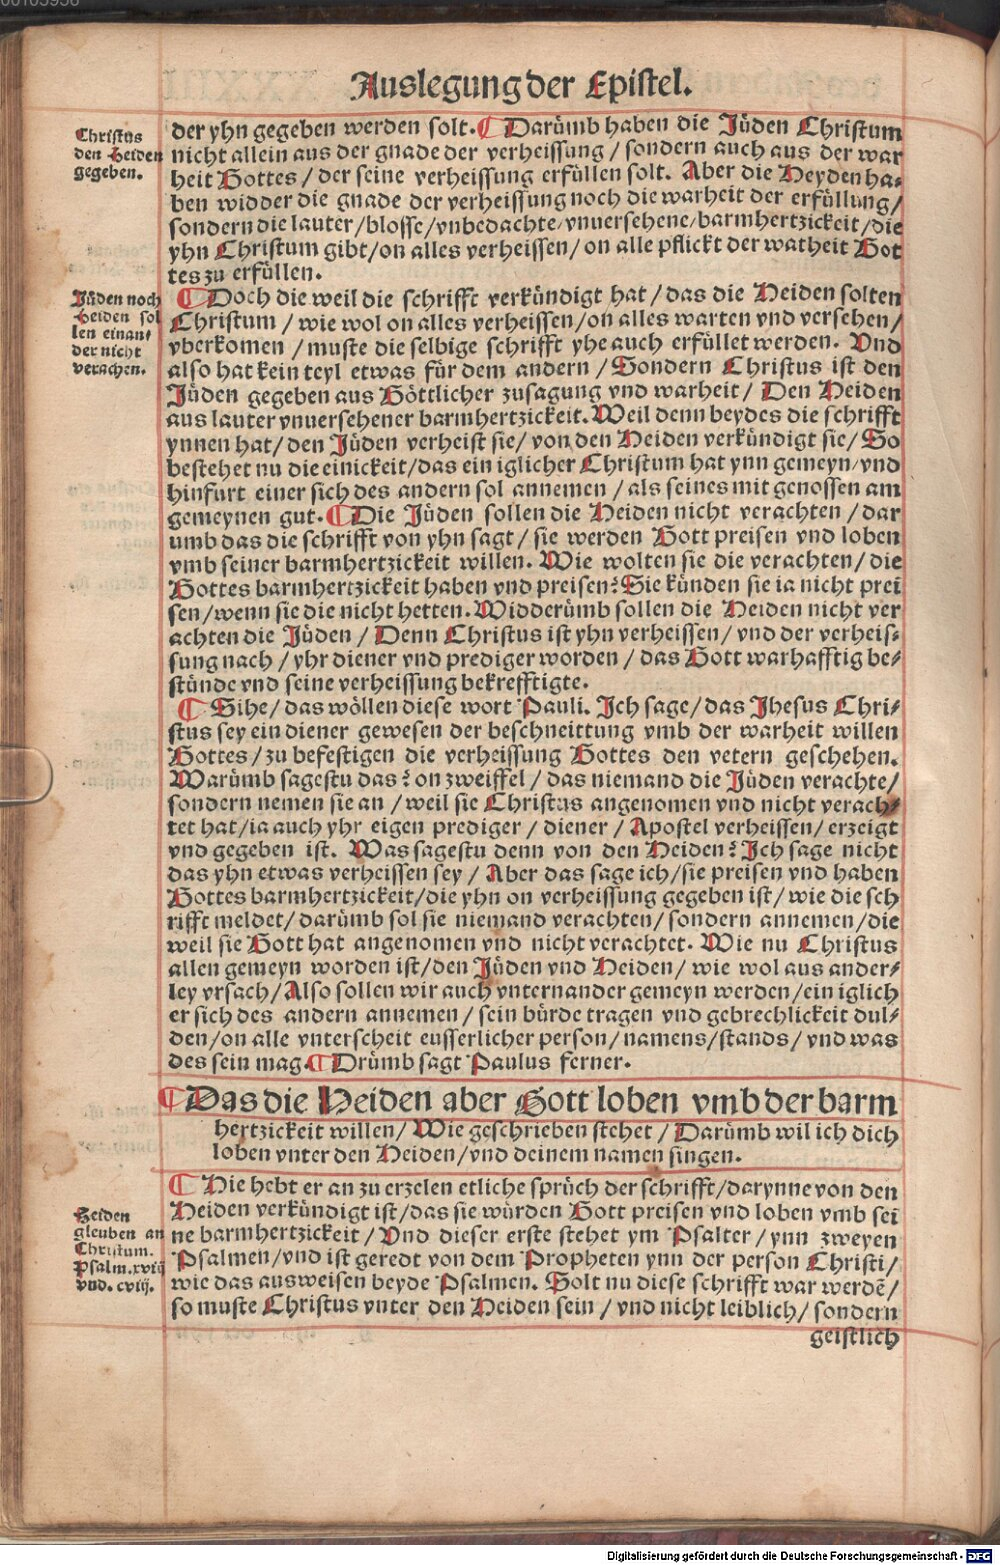 Auslegung der Epistel.
Christus
den Heiden
gegeben.
der yhn gegeben werden solt. ¶ Darümb haben die Jüden Christum
nicht allein aus der gnade der verheissung / sondern auch aus der war
heit Gottes / der seine verheissung erfüllen solt. Aber die Heyden ha-
ben widder die gnade der verheissung noch die warheit der erfüllung/
sondern die lauter/blosse/vnbedachte/vnuersehene/barmhertzickeit/die
yhn Christum gibt/on alles verheissen/on alle pflickt der watheit Got
tes zu erfüllen.
Jüden noch
Heiden sol
len einan-
der nicht
verachen.
¶ Doch die weil die schrifft verkündigt hat/das die Heiden solten
Christum / wie wol on alles verheissen/on alles warten vnd versehen/
vberkomen / muste die selbige schrifft yhe auch erfüllet werden. Vnd
also hat kein teyl etwas für dem andern / Sondern Christus ist den
Jüden gegeben aus Göttlicher zusagung vnd warheit/ Den Heiden
aus lauter vnuersehener barmhertzickeit. Weil denn beydes die schrifft
ynnen hat/den Jüden verheist sie/von den Heiden verkündigt sie/So
bestehet nu die einickeit/das ein iglicher Christum hat ynn gemeyn/vnd
hinfurt einer sich des andern sol annemen / als seines mit genossen am
gemeynen gut. ¶ Die Jüden sollen die Heiden nicht verachten / dar
umb das die schrifft von yhn sagt / sie werden Gott preisen vnd loben
vmb seiner barmhertzickeit willen. Wie wolten sie die verachten/die
Gottes barmhertzickeit haben vnd preisen? Sie künden sie ia nicht prei
sen/wenn sie die nicht hetten. Widderümb sollen die Heiden nicht ver
achten die Jüden / Denn Christus ist yhn verheissen/vnd der verheis-
sung nach / yhr diener vnd prediger worden / das Gott warhafftig be-
stünde vnd seine verheissung bekrefftigte.
¶ Sihe/das wöllen diese wort Pauli. Ich sage/das Jhesus Chri-
stus sey ein diener gewesen der beschneittung vmb der warheit willen
Gottes/zu befestigen die verheissung Gottes den vetern geschehen.
Warümb sagestu das? on zweiffel / das niemand die Jüden verachte/
sondern nemen sie an / weil sie Christus angenomen vnd nicht verach-
tet hat/ia auch yhr eigen prediger / diener / Apostel verheissen/erzeigt
vnd gegeben ist. Was sagestu denn von den Heiden? Ich sage nicht
das yhn etwas verheissen sey / Aber das sage ich/sie preisen vnd haben
Gottes barmhertzickeit/die yhn on verheissung gegeben ist/wie die sch
rifft meldet/darümb sol sie niemand verachten/sondern annemen/die
weil sie Gott hat angenomen vnd nicht verachtet. Wie nu Christus
allen gemeyn worden ist/den Jüden vnd Heiden/wie wol aus ander-
ley vrsach/Also sollen wir auch vnternander gemeyn werden/ein iglich
er sich des andern annemen / sein bürde tragen vnd gebrechlickeit dul-
den/on alle vnterscheit eusserlicher person/namens/stands/vnd was
des sein mag. ¶ Drümb sagt Paulus ferner.
¶ Das die Heiden aber Gott loben vmb der barm
hertzickeit willen/ Wie geschrieben stehet / Darümb wil ich dich
loben vnter den Heiden/vnd deinem namen singen.
¶ Hie hebt er an zu erzelen etliche sprüch der schrifft/darynne von den
Heiden verkündigt ist/das sie würden Gott preisen vnd loben vmb sei
ne barmhertzickeit / Vnd dieser erste stehet ym Psalter / ynn zweyen
Psalmen/vnd ist geredt von dem Propheten ynn der person Christi/
wie das ausweisen beyde Psalmen. Solt nu diese schrifft war werdē/
so muste Christus vnter den Heiden sein / vnd nicht leiblich/sondern
Heiden
gleuben an
Christum.
Psalm.xvij
vnd. cviij.
geistlich
Digitalisierung gefördert durch die Deutsche Forschungsgemeinschaft - DFG